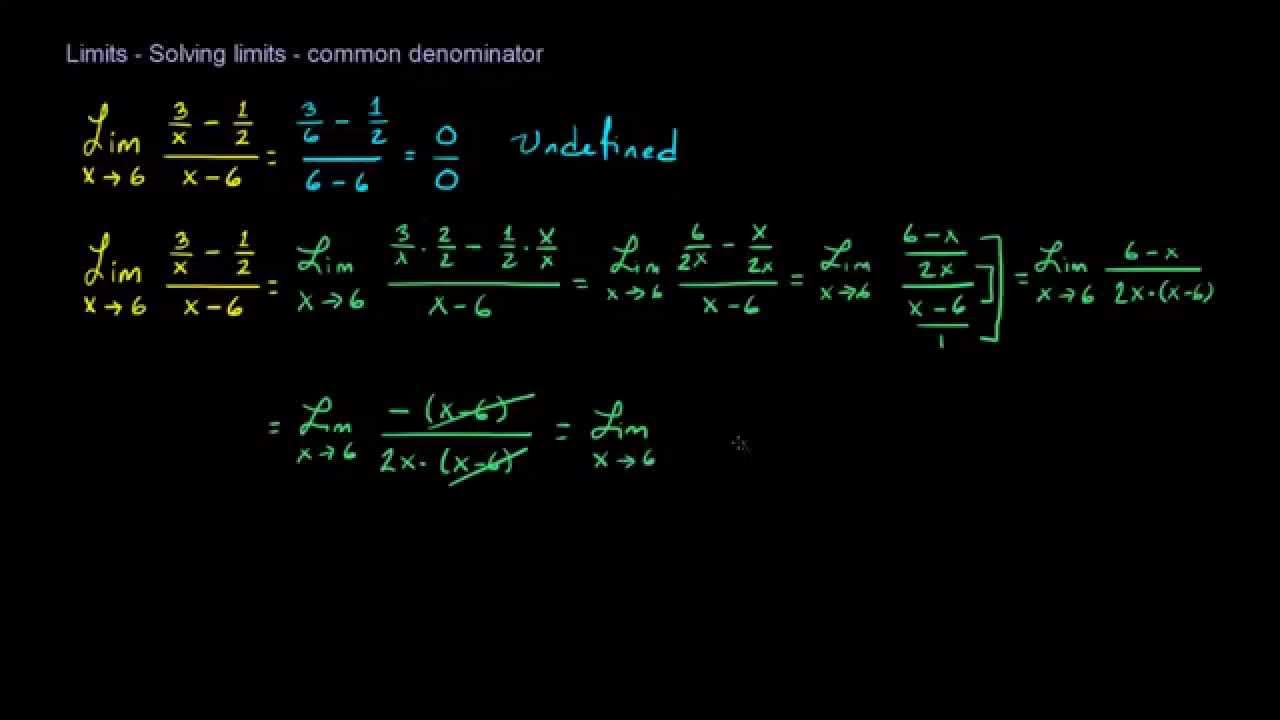 Limits - Solving limits - common denominator
Lim x→6 (3/x - 1/2)/(x-6) = (3/6 - 1/2)/(6-6) = 0/0 Undefined
Lim x→6 (3/x - 1/2)/(x-6) = Lim x→6 (3/x · 2/2 - 1/2 · x/x)/(x-6) = Lim x→6 (6/2x - x/2x)/(x-6) = Lim x→6 ((6-x)/2x)/((x-6)/1) = Lim x→6 (6-x)/(2x·(x-6))
= Lim x→6 -(x-6)/(2x·(x-6)) = Lim x→6